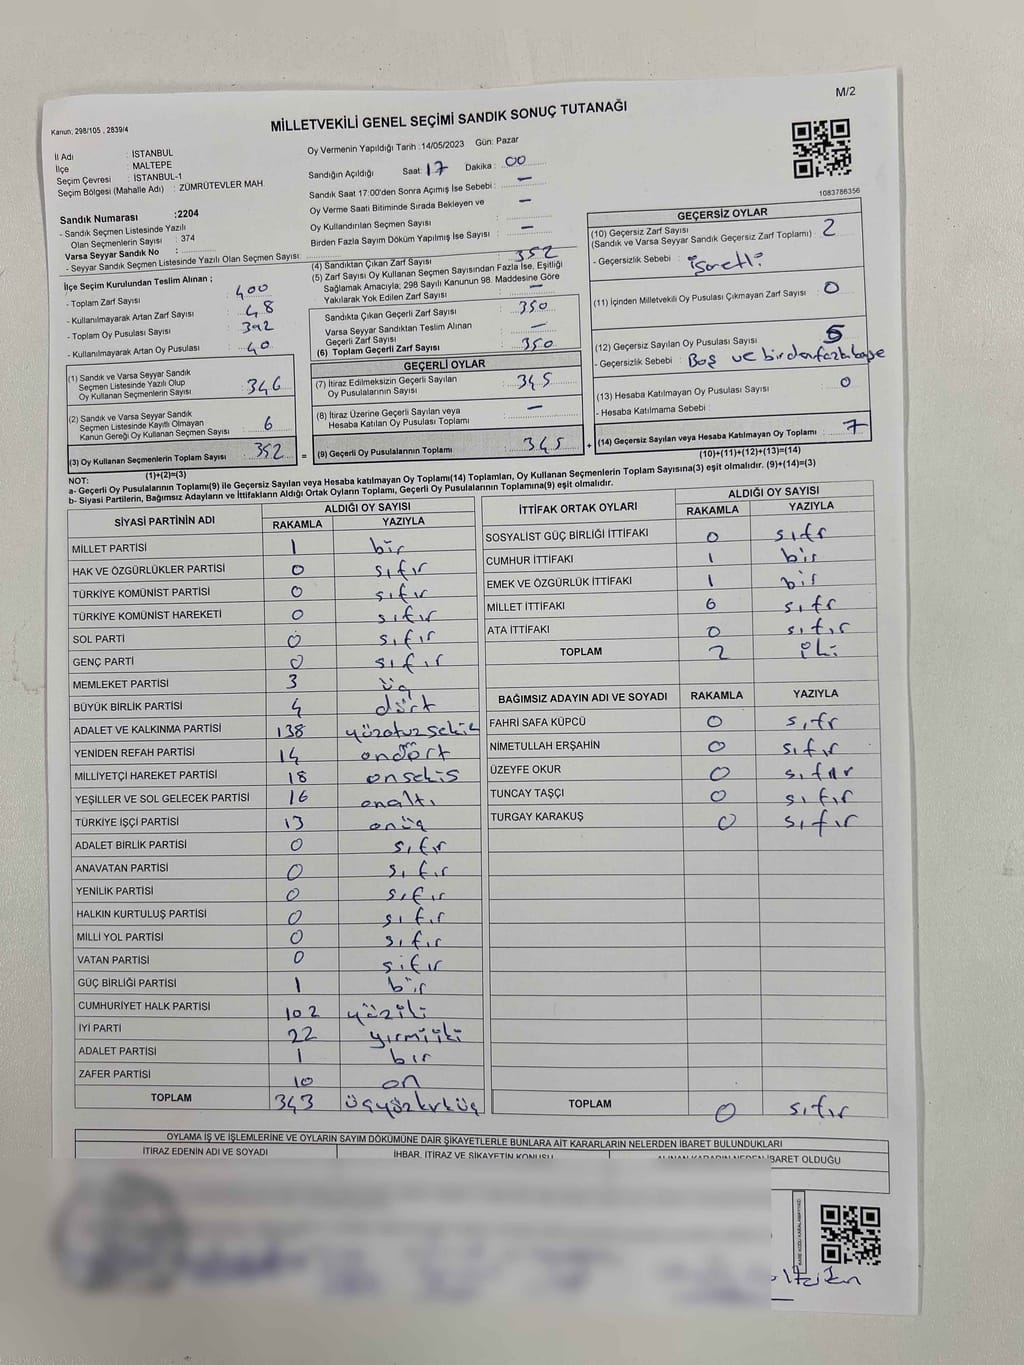 M/2
Kanun: 298/105 , 2839/4
MİLLETVEKİLİ GENEL SEÇİMİ SANDIK SONUÇ TUTANAĞI
İl Adı : İSTANBUL
İlçe : MALTEPE
Seçim Çevresi : İSTANBUL-1
Seçim Bölgesi (Mahalle Adı) : ZÜMRÜTEVLER MAH.
Sandık Numarası :2204
- Sandık Seçmen Listesinde Yazılı
Olan Seçmenlerin Sayısı : 374
Varsa Seyyar Sandık No :
- Seyyar Sandık Seçmen Listesinde Yazılı Olan Seçmen Sayısı:
Oy Vermenin Yapıldığı Tarih :14/05/2023 Gün: Pazar
Sandığın Açıldığı Saat: 17 Dakika : 00
Sandık Saat 17:00'den Sonra Açımış İse Sebebi : —
Oy Verme Saati Bitiminde Sırada Bekleyen ve
Oy Kullandırılan Seçmen Sayısı —
Birden Fazla Sayım Döküm Yapılmış İse Sayısı : —
1083786356
İlçe Seçim Kurulundan Teslim Alınan ;
- Toplam Zarf Sayısı : 400
- Kullanılmayarak Artan Zarf Sayısı : 48
- Toplam Oy Pusulası Sayısı : 392
- Kullanılmayarak Artan Oy Pusulası : 40
(1) Sandık ve Varsa Seyyar Sandık
Seçmen Listesinde Yazılı Olup
Oy Kullanan Seçmenlerin Sayısı : 346
(2) Sandık ve Varsa Seyyar Sandık
Seçmen Listesinde Kayıtlı Olmayan
Kanun Gereği Oy Kullanan Seçmen Sayısı : 6
(3) Oy Kullanan Seçmenlerin Toplam Sayısı : 352
(1)+(2)=(3)
(4) Sandıktan Çıkan Zarf Sayısı : 352
(5) Zarf Sayısı Oy Kullanan Seçmen Sayısından Fazla İse, Eşitliği
Sağlamak Amacıyla; 298 Sayılı Kanunun 98. Maddesine Göre
Yakılarak Yok Edilen Zarf Sayısı : —
Sandıkta Çıkan Geçerli Zarf Sayısı : 350
Varsa Seyyar Sandıktan Teslim Alınan
Geçerli Zarf Sayısı : —
(6) Toplam Geçerli Zarf Sayısı : 350
GEÇERLİ OYLAR
(7) İtiraz Edilmeksizin Geçerli Sayılan
Oy Pusulalarının Sayısı : 345
(8) İtiraz Üzerine Geçerli Sayılan veya
Hesaba Katılan Oy Pusulası Toplamı : —
= (9) Geçerli Oy Pusulalarının Toplamı : 345 +
GEÇERSİZ OYLAR
(10) Geçersiz Zarf Sayısı : 2
(Sandık ve Varsa Seyyar Sandık Geçersiz Zarf Toplamı)
- Geçersizlik Sebebi : işaretli
(11) İçinden Milletvekili Oy Pusulası Çıkmayan Zarf Sayısı : 0
(12) Geçersiz Sayılan Oy Pusulası Sayısı : 5
- Geçersizlik Sebebi : Boş ve birden fazla
(13) Hesaba Katılmayan Oy Pusulası Sayısı : 0
- Hesaba Katılmama Sebebi :
(14) Geçersiz Sayılan veya Hesaba Katılmayan Oy Toplamı : 7
(10)+(11)+(12)+(13)=(14)
NOT:
a- Geçerli Oy Pusulalarının Toplamı(9) ile Geçersiz Sayılan veya Hesaba katılmayan Oy Toplamı(14) Toplamları, Oy Kullanan Seçmenlerin Toplam Sayısına(3) eşit olmalıdır. (9)+(14)=(3)
b- Siyasi Partilerin, Bağımsız Adayların ve İttifakların Aldığı Ortak Oyların Toplamı, Geçerli Oy Pusulalarının Toplamına(9) eşit olmalıdır.
SİYASİ PARTİNİN ADI ALDIĞI OY SAYISI
RAKAMLA YAZIYLA
MİLLET PARTİSİ 1 bir
HAK VE ÖZGÜRLÜKLER PARTİSİ 0 sıfır
TÜRKİYE KOMÜNİST PARTİSİ 0 sıfır
TÜRKİYE KOMÜNİST HAREKETİ 0 sıfır
SOL PARTİ 0 sıfır
GENÇ PARTİ 0 sıfır
MEMLEKET PARTİSİ 3 üç
BÜYÜK BİRLİK PARTİSİ 4 dört
ADALET VE KALKINMA PARTİSİ 138 yüzotuzsekiz
YENİDEN REFAH PARTİSİ 14 ondört
MİLLİYETÇİ HAREKET PARTİSİ 18 onsekis
YEŞİLLER VE SOL GELECEK PARTİSİ 16 onaltı
TÜRKİYE İŞÇİ PARTİSİ 13 onüç
ADALET BİRLİK PARTİSİ 0 sıfır
ANAVATAN PARTİSİ 0 sıfır
YENİLİK PARTİSİ 0 sıfır
HALKIN KURTULUŞ PARTİSİ 0 sıfır
MİLLİ YOL PARTİSİ 0 sıfır
VATAN PARTİSİ 0 sifır
GÜÇ BİRLİĞİ PARTİSİ 1 bir
CUMHURİYET HALK PARTİSİ 102 yüziki
İYİ PARTİ 22 yirmiiki
ADALET PARTİSİ 1 bır
ZAFER PARTİSİ 10 on
TOPLAM 343 üçyüzkırküç
İTTİFAK ORTAK OYLARI ALDIĞI OY SAYISI
RAKAMLA YAZIYLA
SOSYALİST GÜÇ BİRLİĞİ İTTİFAKI 0 sıfr
CUMHUR İTTİFAKI 1 bir
EMEK VE ÖZGÜRLÜK İTTİFAKI 1 bir
MİLLET İTTİFAKI 0 sıfr
ATA İTTİFAKI 0 sıfır
TOPLAM 2 iki
BAĞIMSIZ ADAYIN ADI VE SOYADI RAKAMLA YAZIYLA
FAHRİ SAFA KÜPCÜ 0 sıfr
NİMETULLAH ERŞAHİN 0 sıfır
ÜZEYFE OKUR 0 sıfır
TUNCAY TAŞÇI 0 sıfır
TURGAY KARAKUŞ 0 sıfır
TOPLAM 0 sıfır
OYLAMA İŞ VE İŞLEMLERİNE VE OYLARIN SAYIM DÖKÜMÜNE DAİR ŞİKAYETLERLE BUNLARA AİT KARARLARIN NELERDEN İBARET BULUNDUKLARI
İTİRAZ EDENİN ADI VE SOYADI İHBAR, İTİRAZ VE ŞİKAYETİN KONUSU ALINAN KARARIN NEDEN İBARET OLDUĞU